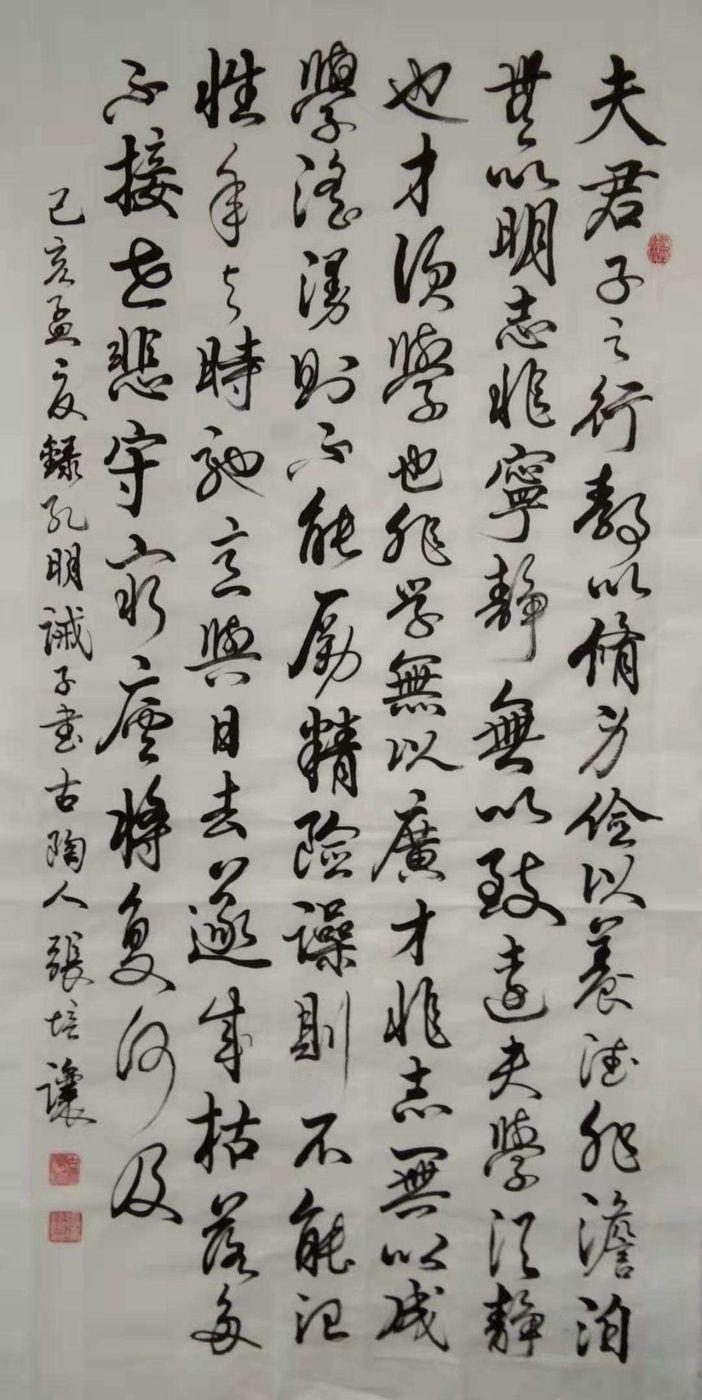 夫君子之行静以脩身儉以養德非澹泊
無以明志非寧靜無以致遠夫學須静
也才須學也非学無以廣才非志無以成
學滛漫則不能勵精險躁則不能冶
性年与時馳意與日去遂成枯落多
不接世悲守窮廬將復何及
己亥孟夏録孔明誡子書古陶人張培讓